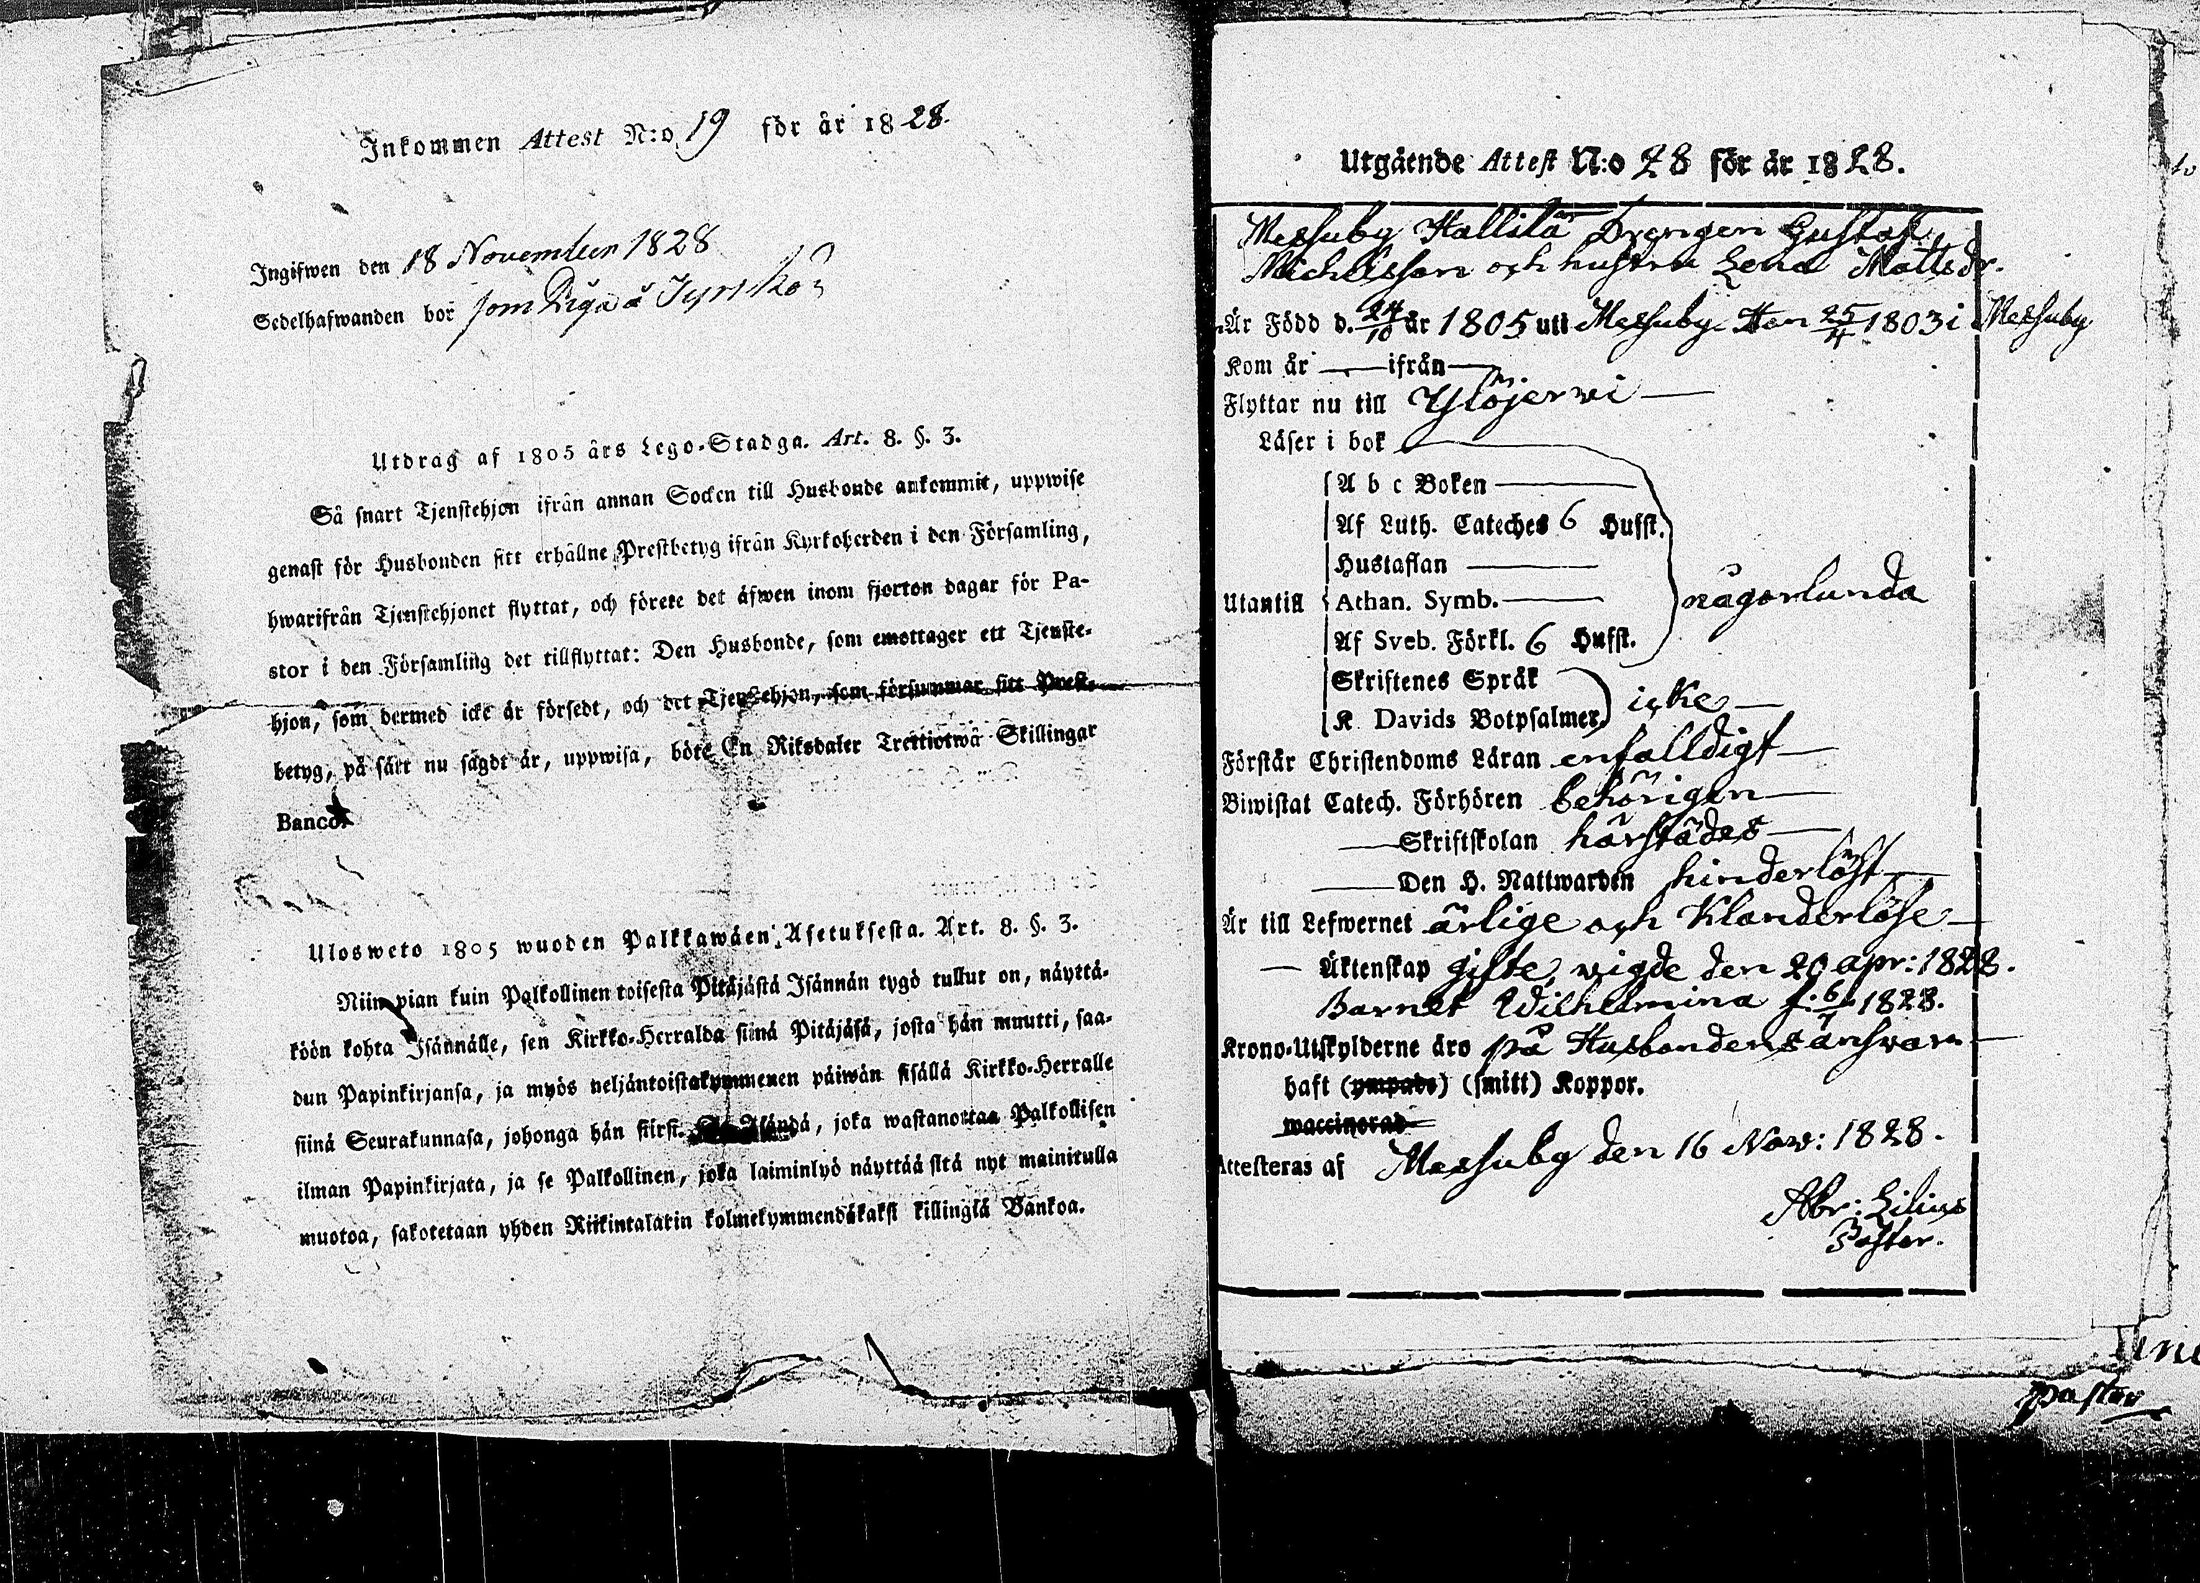 Inkommen Attest N:o 19 för år 1828.
Ingifwen den 18 November 1828
Sedelhafwanden bor som Piga å
Utdrag af 1805 års Lego-Stadga. Art. 8. §. 3.
Så snart Tjenstehjon ifrån annan Socken till Husbonde ankommit, uppwise
genast för Husbonden sitt erhållne Prestbetyg ifrån Kyrkoherden i den Församling,
hwarifrån Tjenstehjonet flyttat, och förete det äfwen inom fjorton dagar för Pa-
stor i den Församling det tillflyttat: Den Husbonde, som emottager ett Tjenste-
hjon, som dermed icke är försedt, och det Tjenstehjon, som försummar sitt Prest-
betyg, på sätt nu sagdt är, uppwisa, böte En Riksdaler Trettiotwå Skillingar
Banco.
Ulosweto 1805 wuoden Palkkawäen Asetuksesta. Art. 8. §. 3.
Niin pian kuin Palkollinen toisesta Pitäjästä Isännän tygö tullut on, näyttä-
köön kohta Isännälle, sen Kirkko-Herralda siinä Pitäjäsä, josta hän muutti, saa-
dun Papinkirjansa, ja myös neljäntoistakymmenen päiwän sisällä Kirkko-Herralle
siinä Seurakunnasa, johonga hän siirsi. Isändä, joka wastanottaa Palkollisen
ilman Papinkirjata, ja se Palkollinen, joka laiminlyö näyttää sitä nyt mainitulla
muotoa, sakotetaan yhden Riikintalarin kolmekymmendäkaksi killingiä Bankoa.
Utgående Attest N:o 28 för år 1828.
Messuby Hallila Drengen Gustaf
Michelsson och hustru Lena Mattsdr.
Är Född d. 24/10 år 1805 uti Messuby. Hon 25/4 1803 i Messuby
Kom år — ifrån —
Flyttar nu till Ylöjerwi —
Läser i bok
A b c Boken —
Af Luth. Cateches 6 Hufst.
Hustaflan —
Utantill Athan. Symb. — någorlunda
Af Sveb. Förkl. 6 Hufst.
Skriftenes Språk
K Davids Botpsalmer icke —
Förstår Christendoms Läran enfalldigt —
Biwistat Catech. Förhören behörigen —
— Skriftskolan härstädes —
— Den H. Nattwarden hinderlöst —
Är till Lefwernet ärlige och Klanderlöse —
— Äktenskap gifte, wigde den 20 apr: 1828.
Barnet Wilhelmina f. 6/7 1828.
Krono-Utskylderne äro på Husbondens answar —
haft (ympade) (smitt) Koppor.
waccinerad
Attesteras af Messuby den 16 Nov: 1828.
Abr: Lilius
Pastor.
pastor